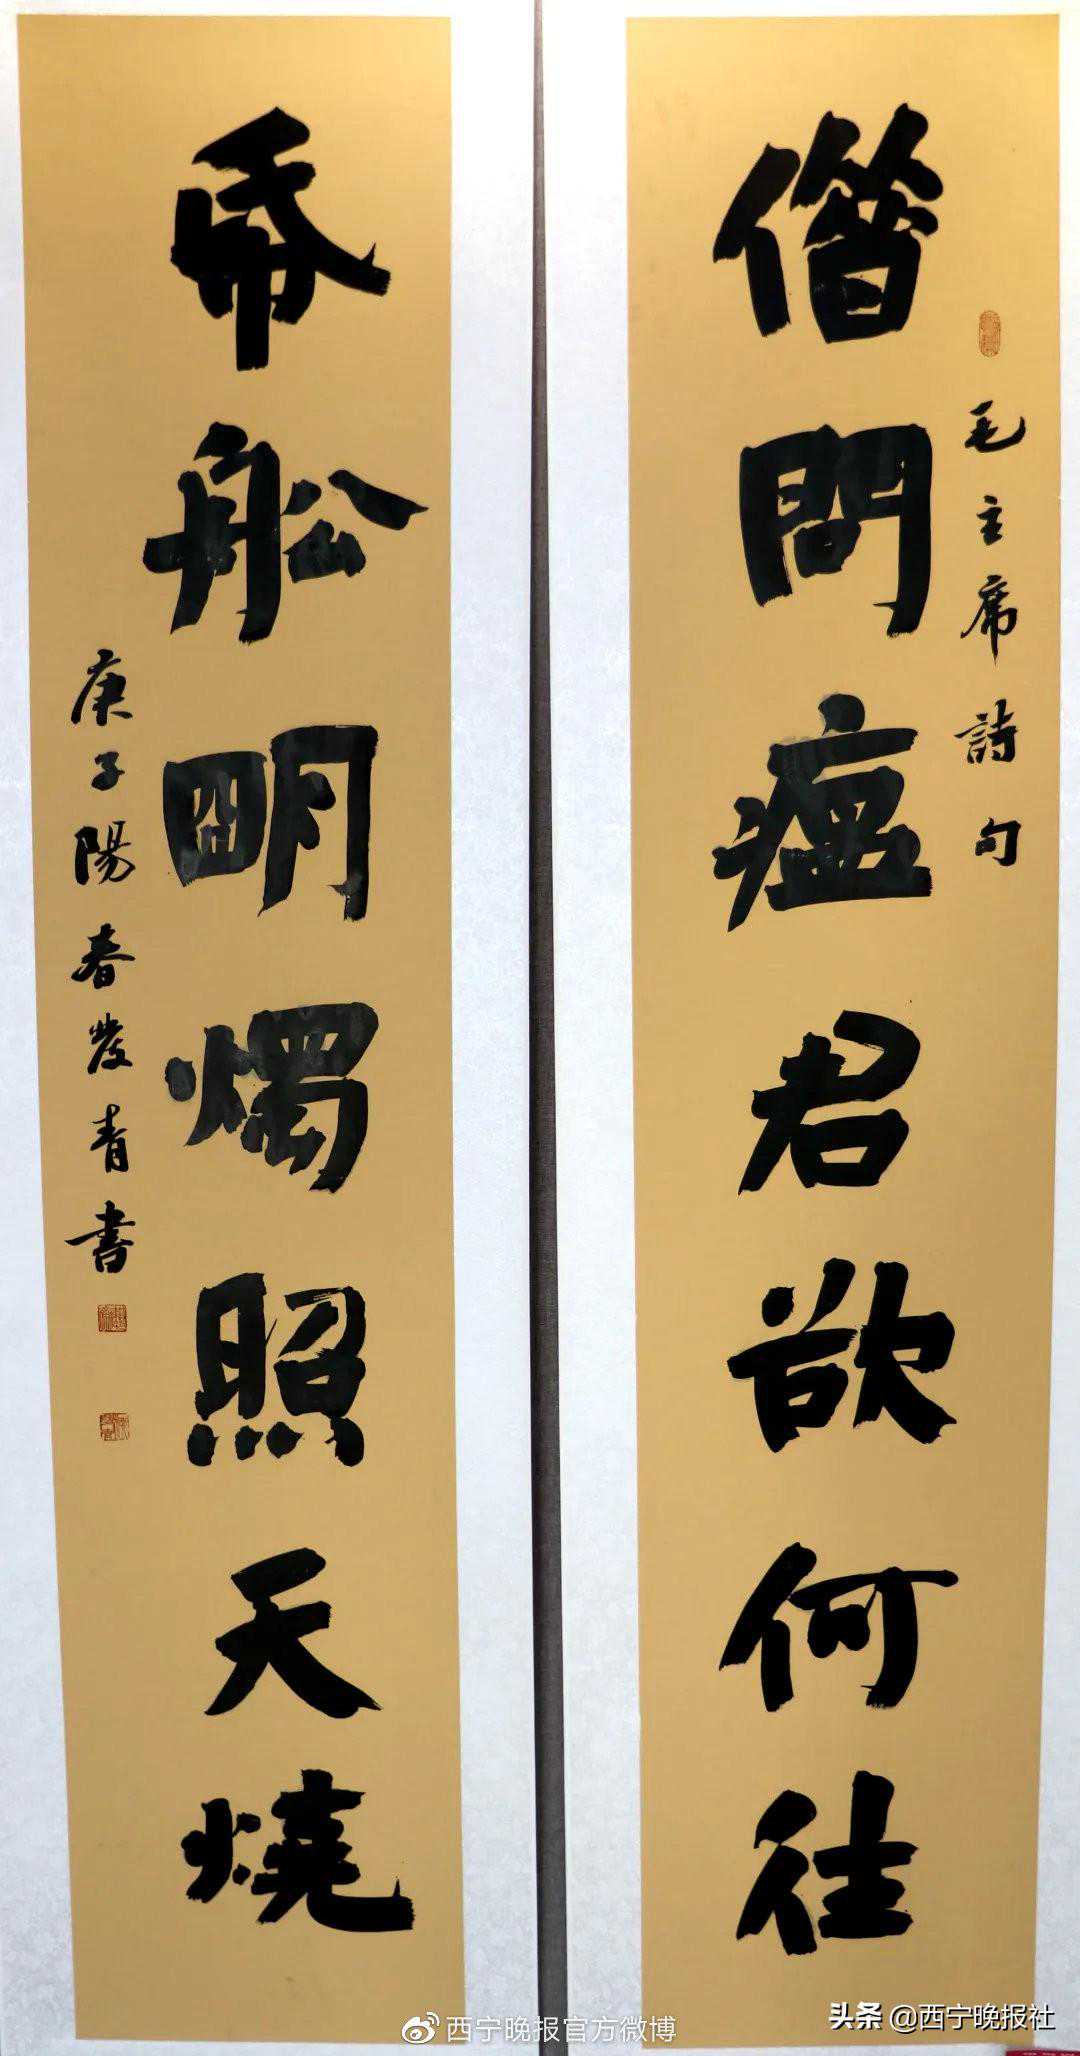 毛主席詩句
借問瘟君欲何往
帋船明燭照天燒
庚子陽春發青書
西宁晚报官方微博
头条 @西宁晚报社